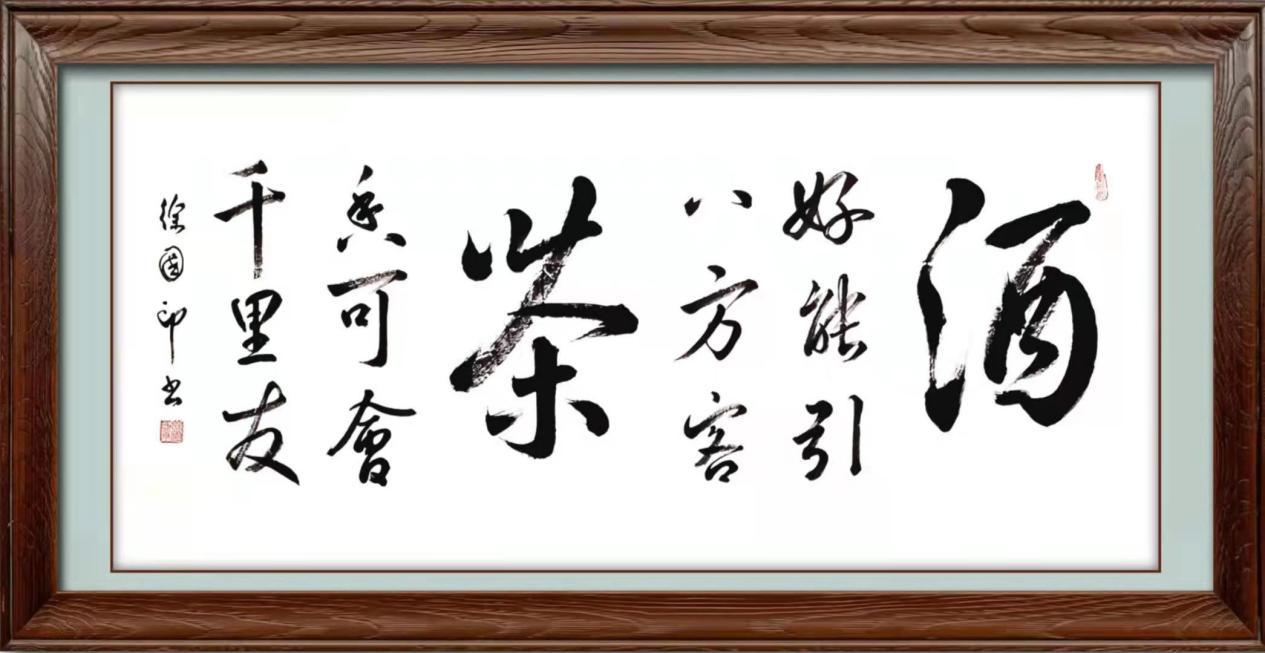 酒
好能引
八方客
茶
香可會
千里友
徐國印書